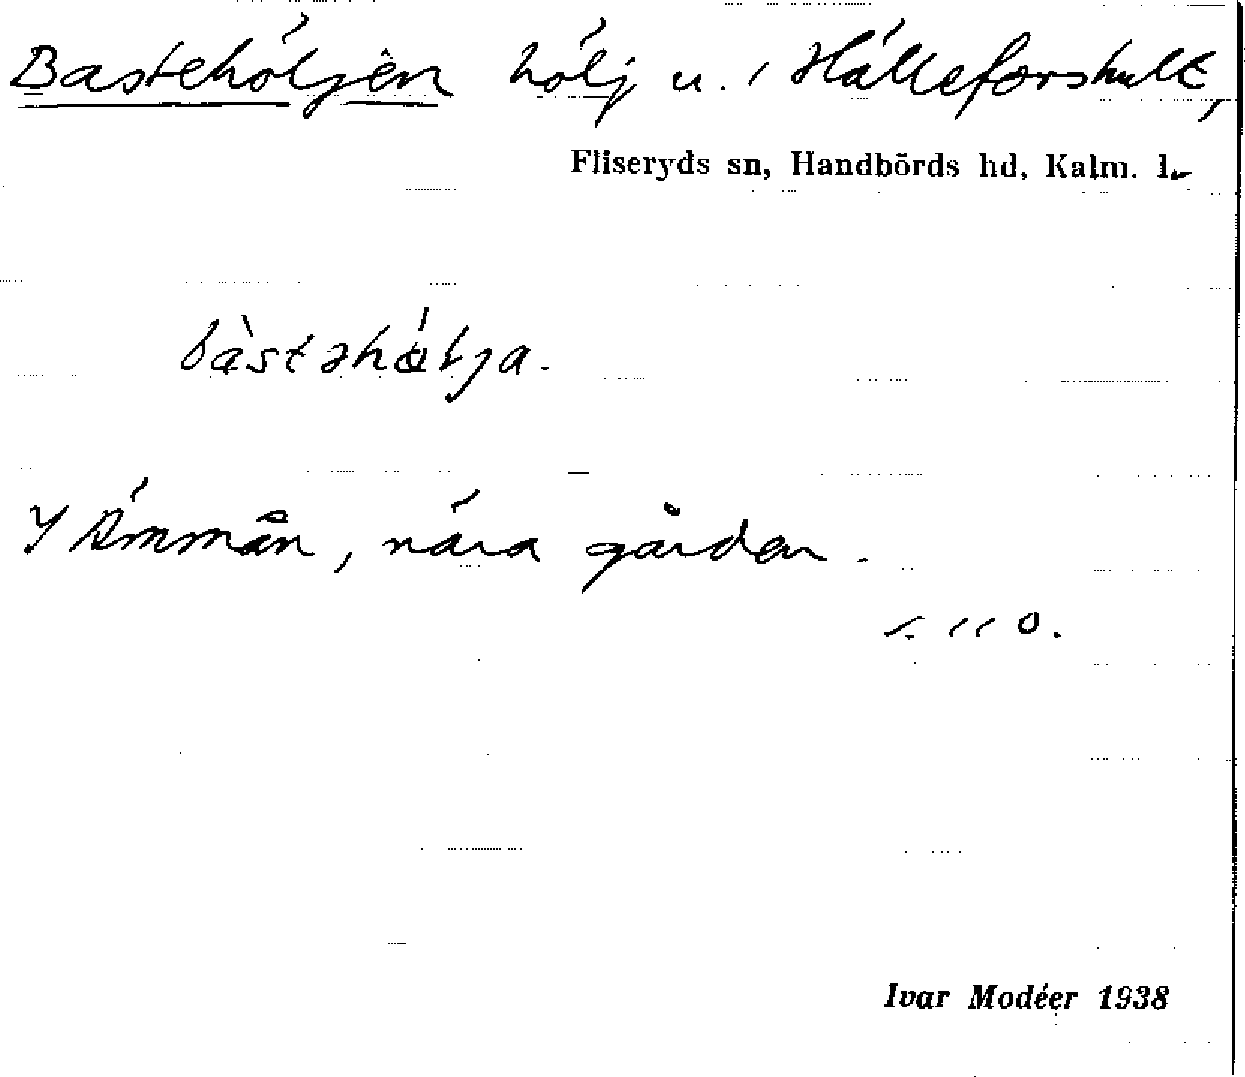 Bastehöljen hölj u. i Hälleforshult,
Fliseryds sn, Handbörds hd, Kalm. l.
bàstəhə́lja.
I Ämmån, nära gården.
Ivar Modéer 1938